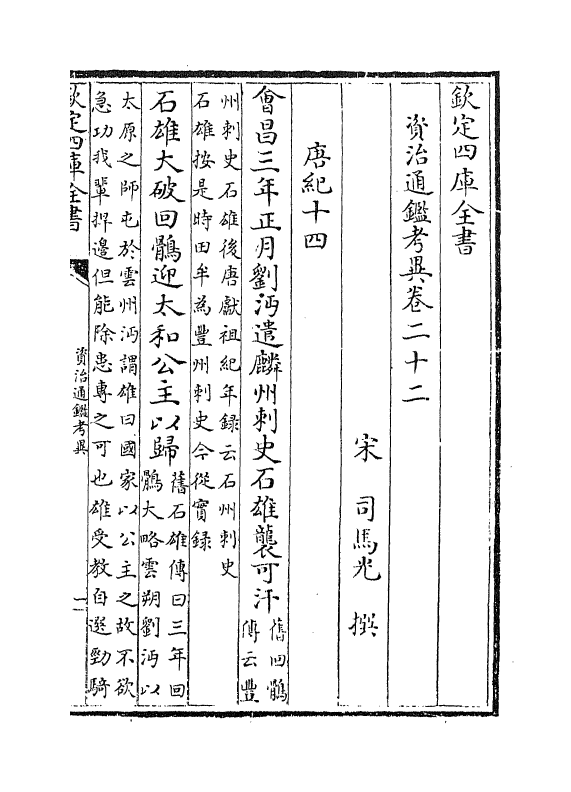 欽定四庫全書
資治通鑑考異卷二十二
宋 司馬光 撰
唐紀十四
會昌三年正月劉沔遣麟州刺史石雄襲可汗
舊回鶻
傳云豐
州刺史石雄後唐獻祖紀年録云石州刺史
石雄按是時田牟為豐州刺史今從實録
石雄大破回鶻迎太和公主以歸
舊石雄傳曰三年回
鶻大略雲朔劉沔以
太原之師屯於雲州沔謂雄曰國家以公主之故不欲
急功我輩捍邊但能除患專之可也雄受教自選勁騎
欽定四庫全書
資治通鑑考異
一